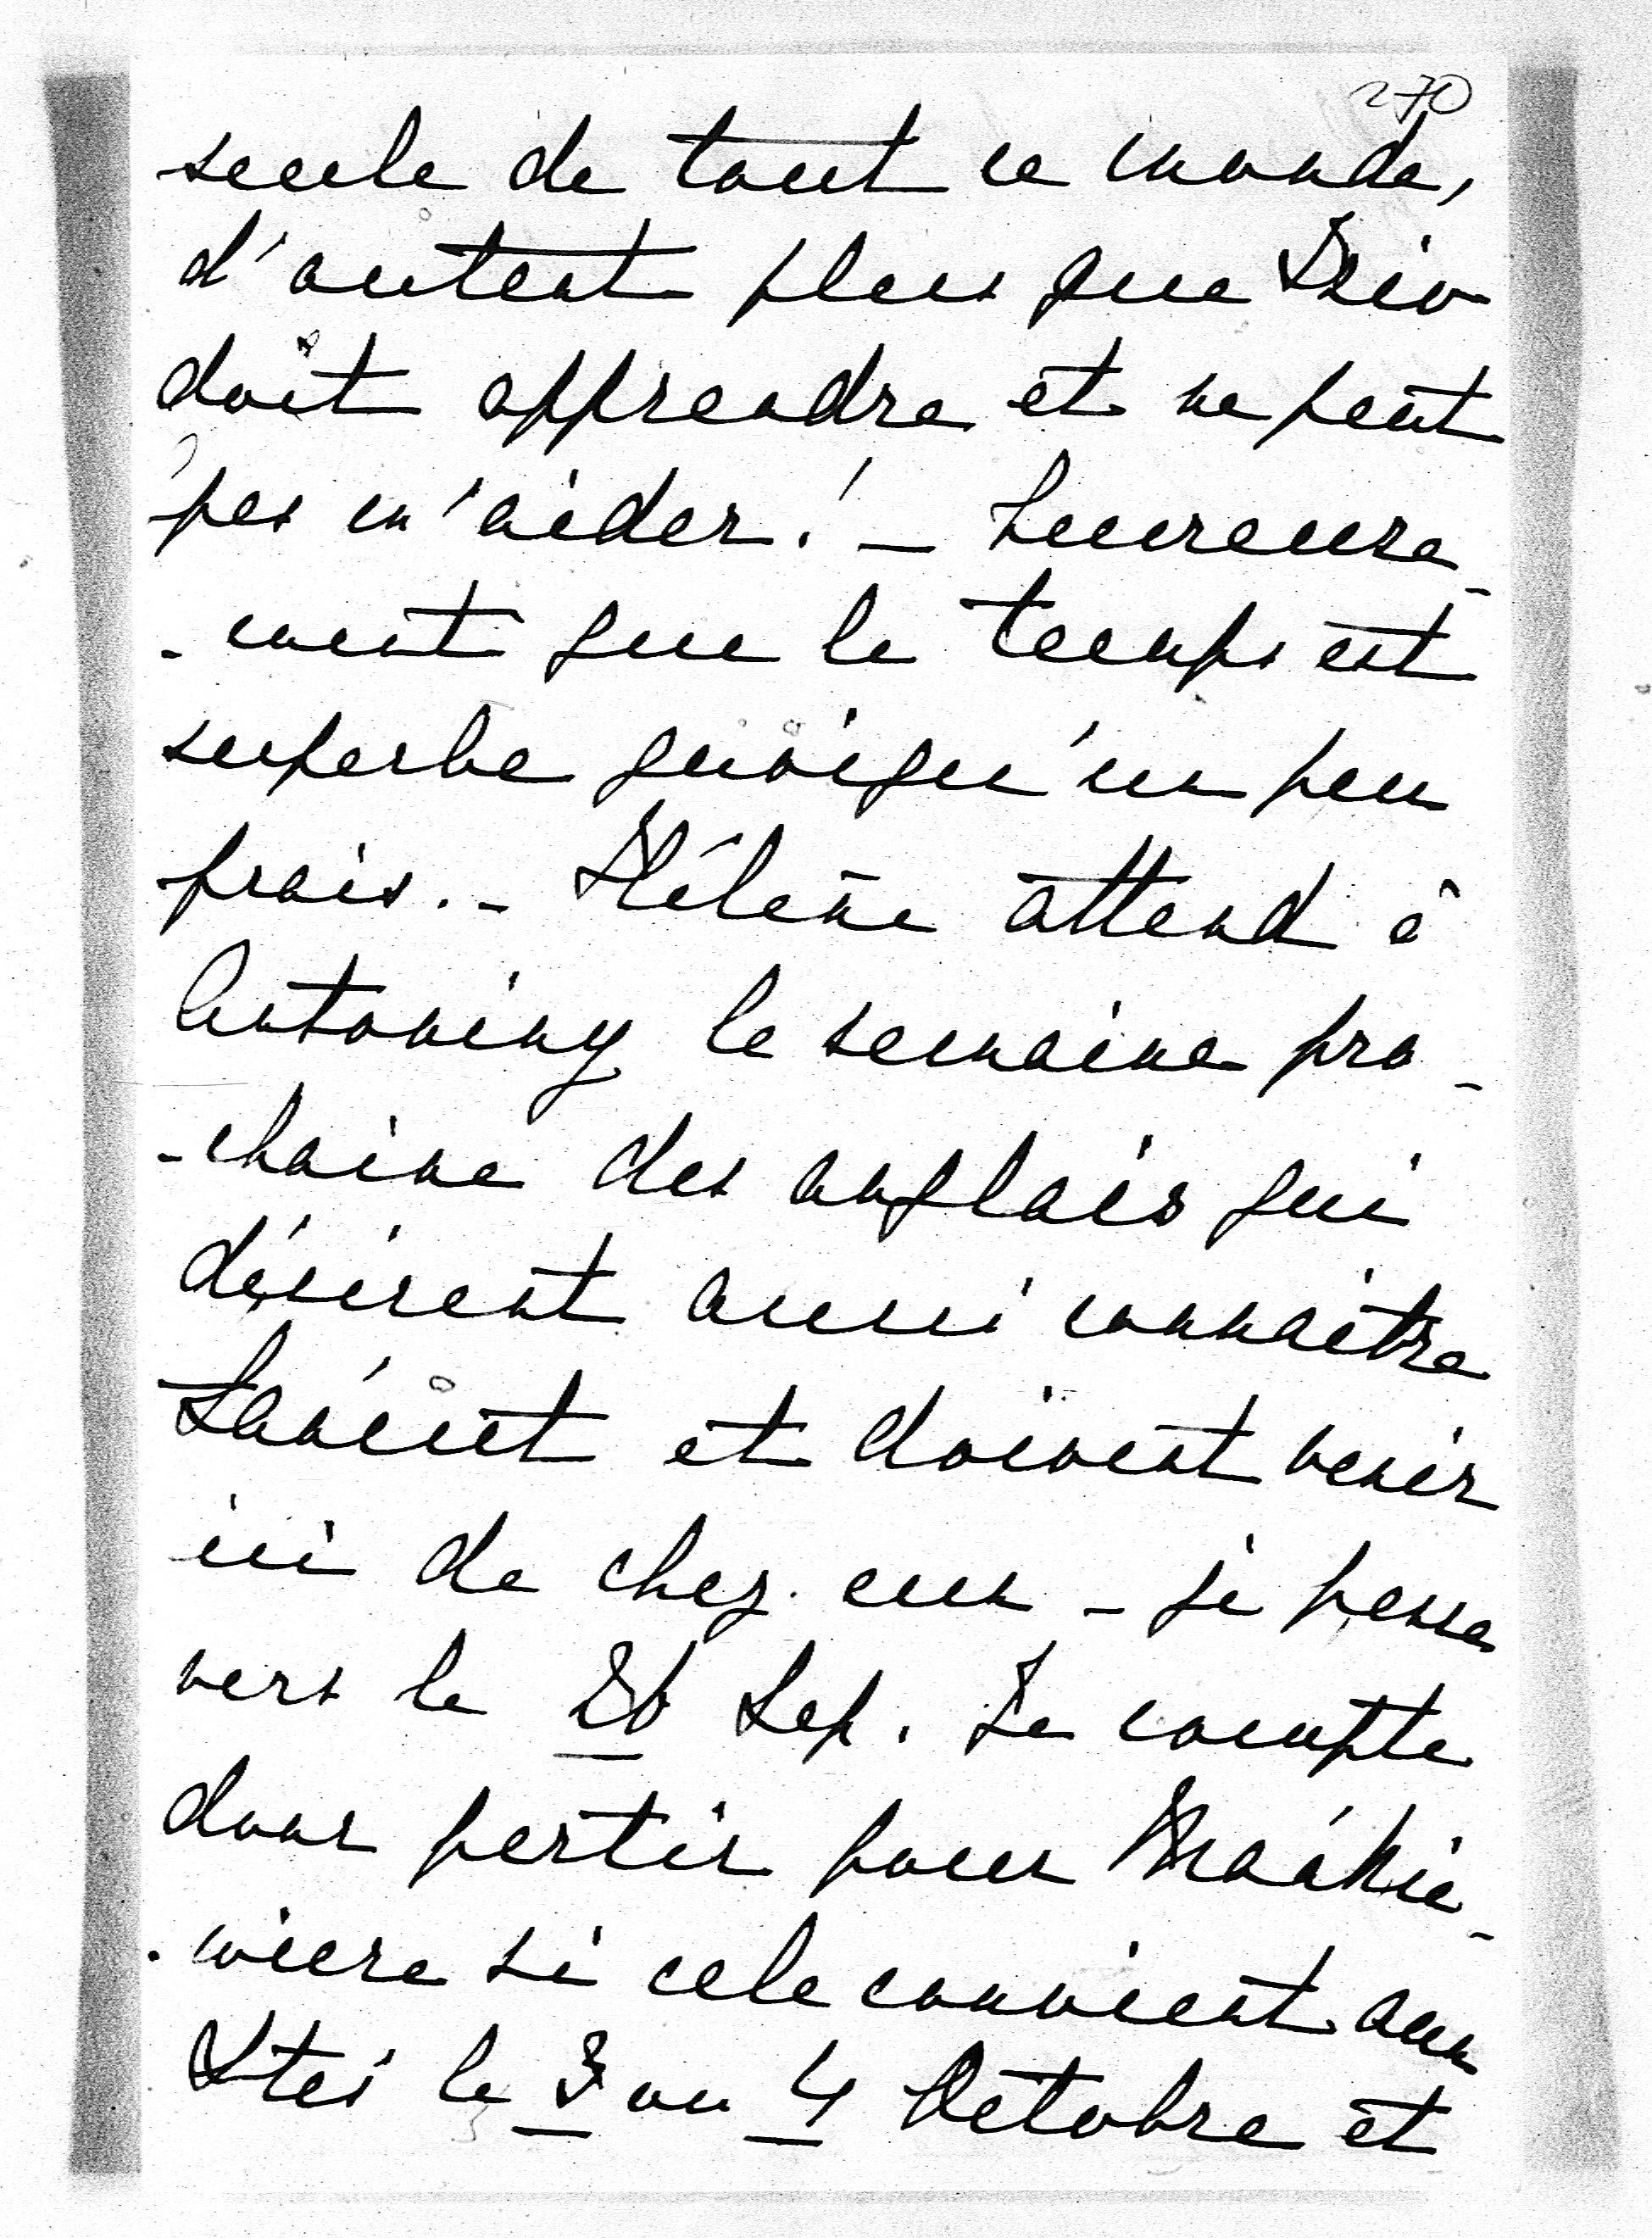 270
seule de tout ce monde,
d'autant plus que Izio
doit apprendre et ne peut
pas m'aider! — Heureuse-
-ment que le temps est
superbe quoiqu'un peu
frais. — Hélène attend à
Antoniny la semaine pro-
-chaine des anglais qui
désirent aussi connaître
Łańcut et doivent venir
ici de chez eux — je pense
vers le 26 Sep. Je compte
donc partir pour
si cela convient aux
le 3 ou 4 Octobre et